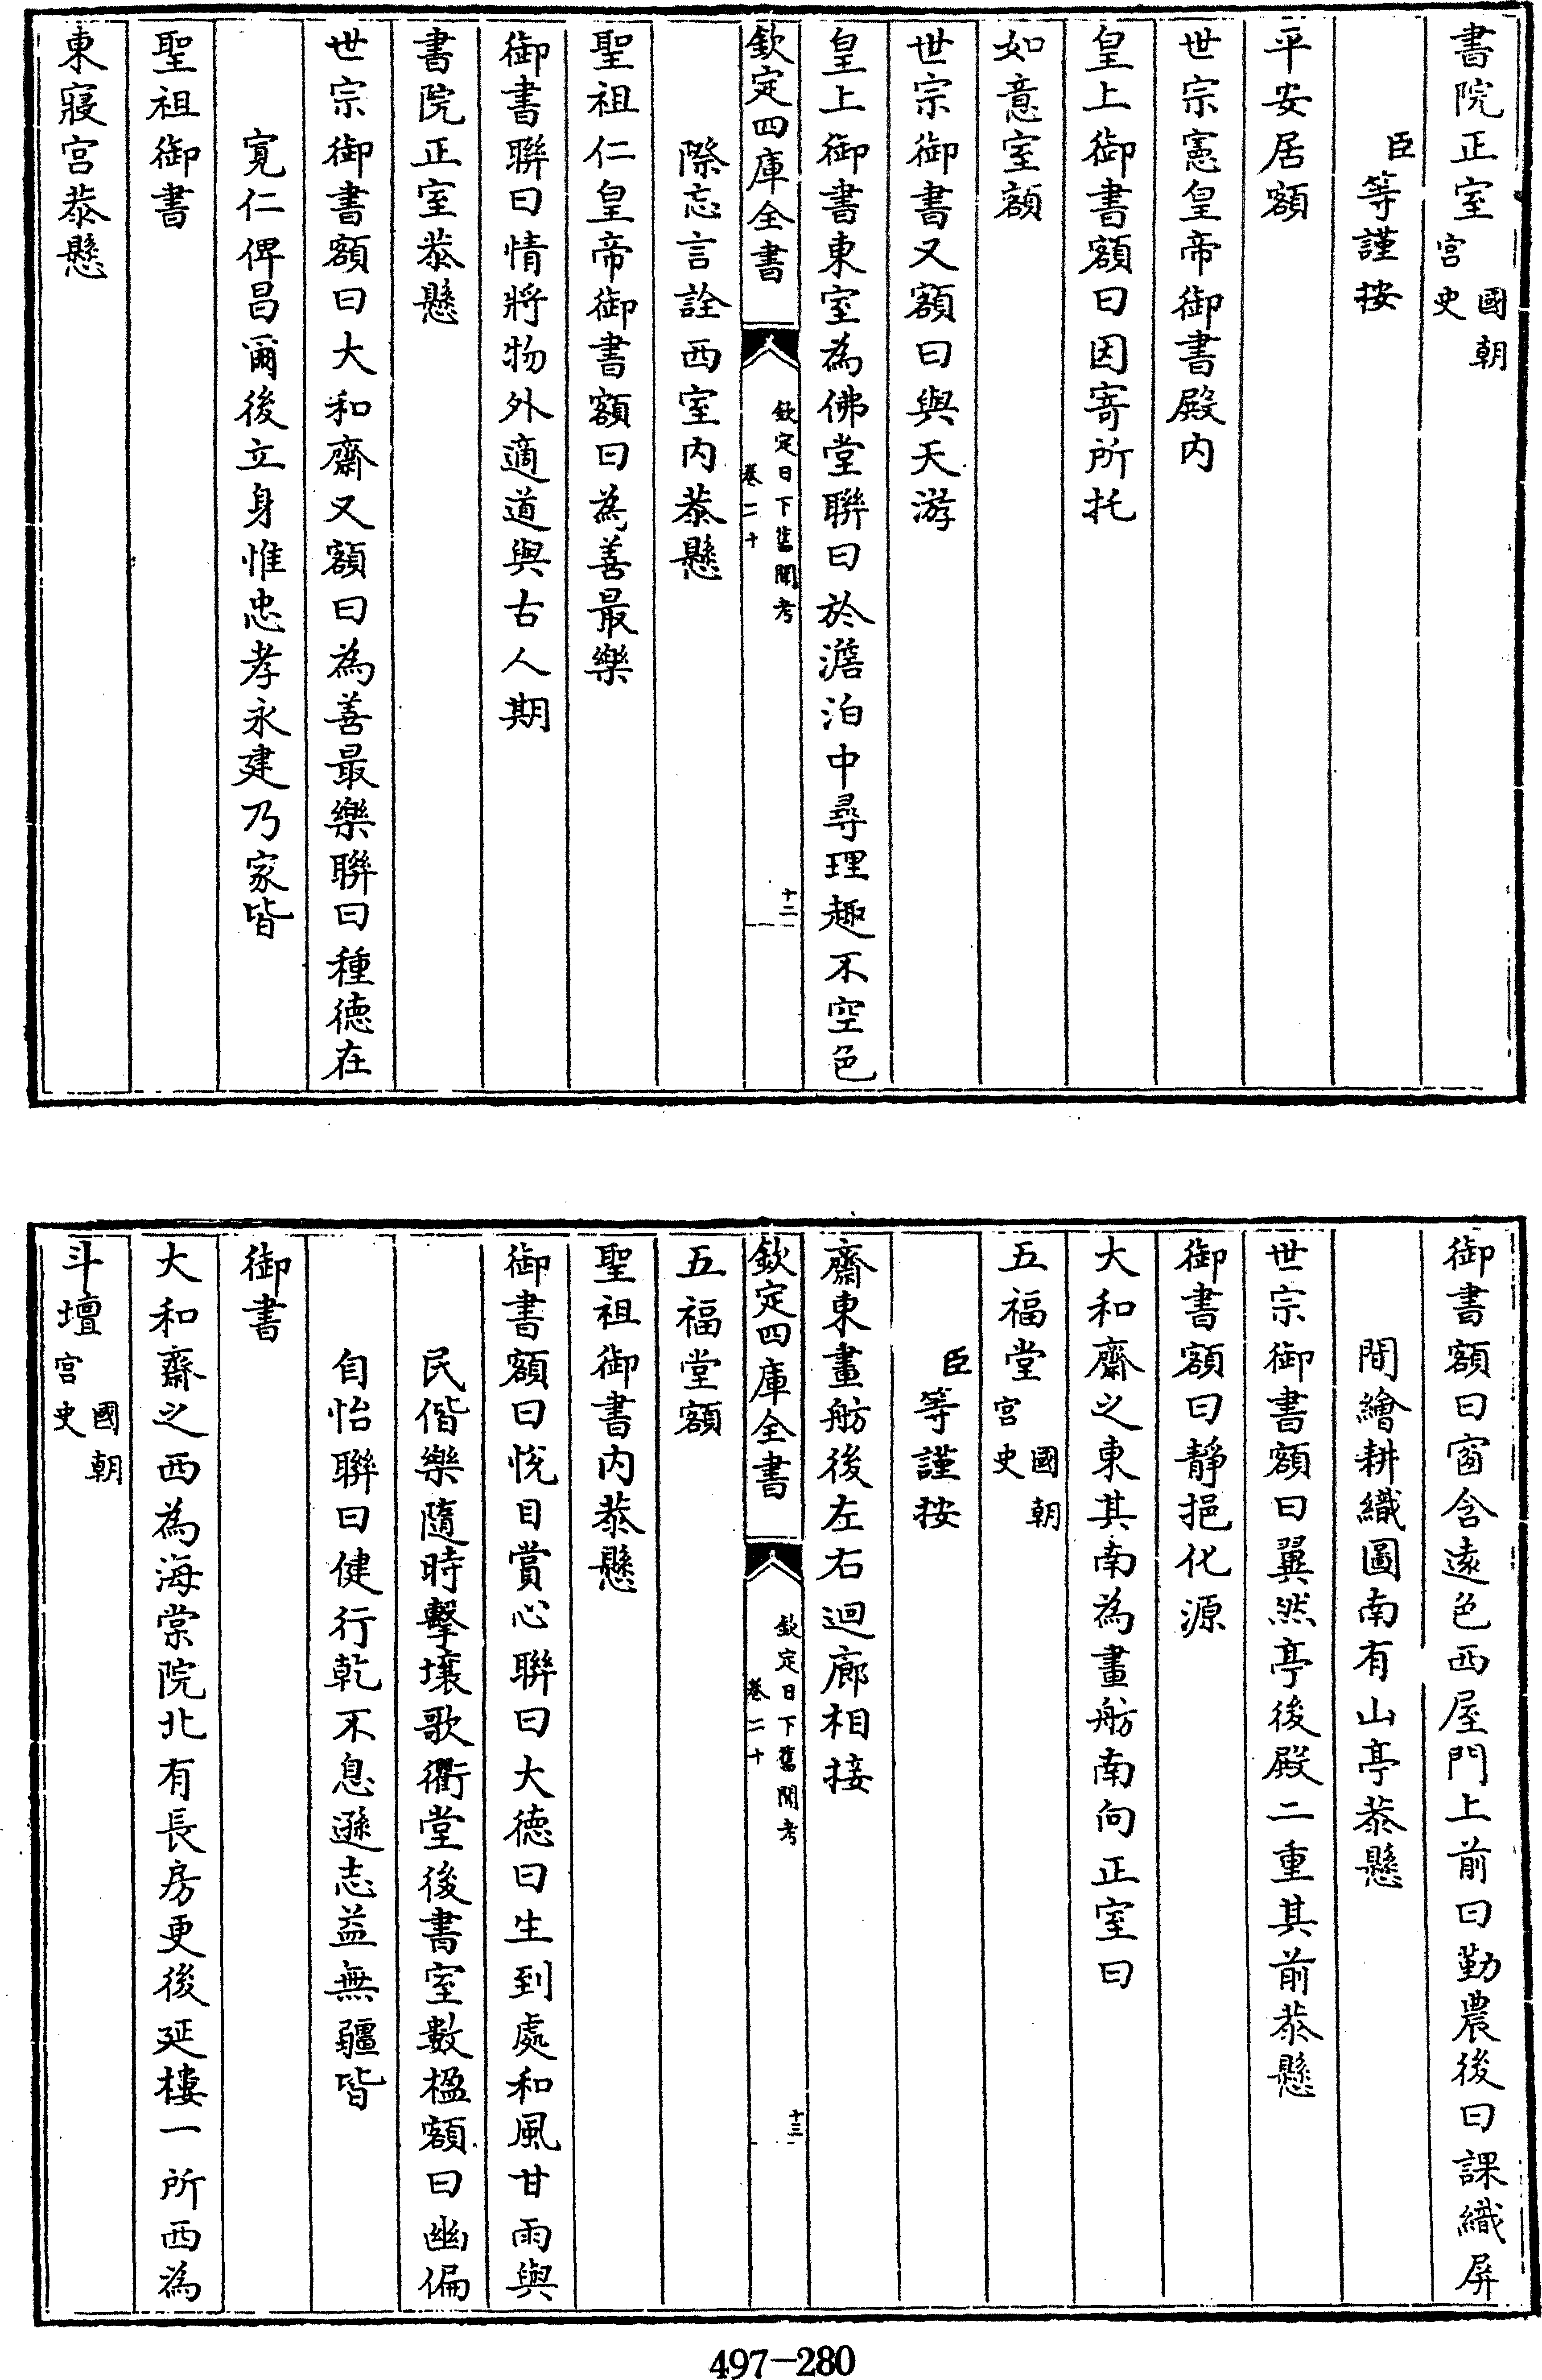 書院正室國朝宮史
臣等謹按
平安居額
世宗憲皇帝御書殿内
皇上御書額曰因寄所托
如意室額
世宗御書又額曰與天游
皇上御書東室為佛堂聯曰於澹泊中尋理趣不空色
欽定四庫全書
欽定日下舊聞考
卷二十
十二
際忘言詮西室内恭懸
聖祖仁皇帝御書額曰為善最樂
御書聯曰情將物外適道與古人期
書院正室恭懸
世宗御書額曰大和齋又額曰為善最樂聯曰種徳在
寛仁俾昌爾後立身惟忠孝永建乃家皆
聖祖御書
東寢宫恭懸
御書額曰窗含遠色西屋門上前曰勤農後曰課織屏
間繪耕織圖南有山亭恭懸
世宗御書額曰翼然亭後殿二重其前恭懸
御書額曰靜挹化源
大和齋之東其南為畫舫南向正室曰
五福堂國朝宮史
臣等謹按
齋東畫舫後左右迴廊相接
欽定四庫全書
欽定日下舊聞考
卷二十
十三
五福堂額
聖祖御書内恭懸
御書額曰悅目賞心聯曰大德曰生到處和風甘雨與
民偕樂隨時擊壤歌衢堂後書室數楹額曰幽偏
自怡聯曰健行乾不息遜志益無疆皆
御書
大和齋之西為海棠院北有長房更後延樓一所西為
斗壇國朝宮史
497-280